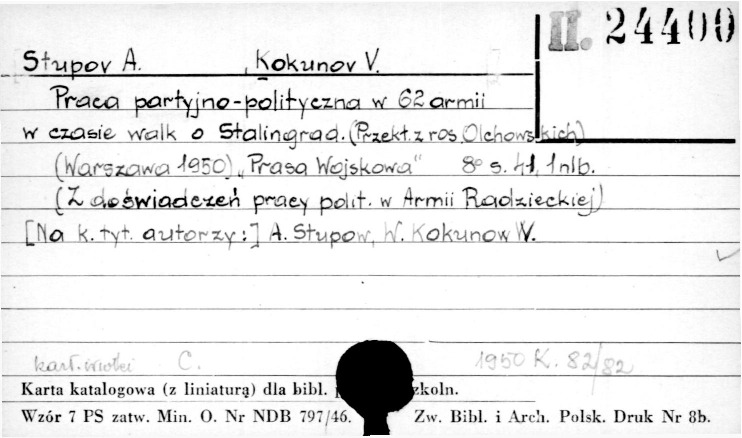 II. 24400
Stupov A. , Kokunov V.
Praca partyjno-polityczna w 62 armii
w czasie walk o Stalingrad. (Przekł. z ros. Olchowskich)
(Warszawa 1950) „Prasa Wojskowa" 8° s. 41, 1 nlb.
(Z doświadczeń pracy polit. w Armii Radzieckiej)
[Na k. tyt. autorzy:] A. Stupow, W. Kokunow W.
C. 1950 K. 82/82
Karta katalogowa (z liniaturą) dla bibl. zkoln.
Wzór 7 PS zatw. Min. O. Nr NDB 797/46. Zw. Bibl. i Arch. Polsk. Druk Nr 8b.